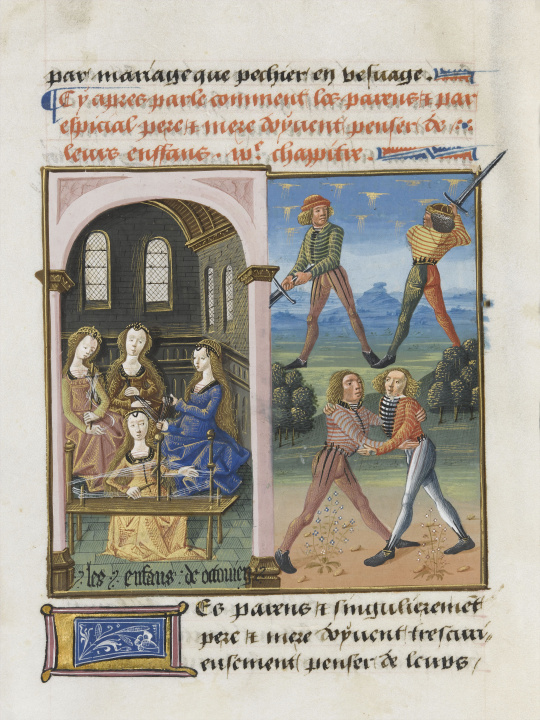 par mariage que pechier en vesvage.
Cy apres parle comment les parens & par
especial pere & mere doyuent penser de
leurs enffans. chapitre.
les enfans de octouien
es parens & singulierement
pere & mere doyuent trescuri
eusement penser de leurs